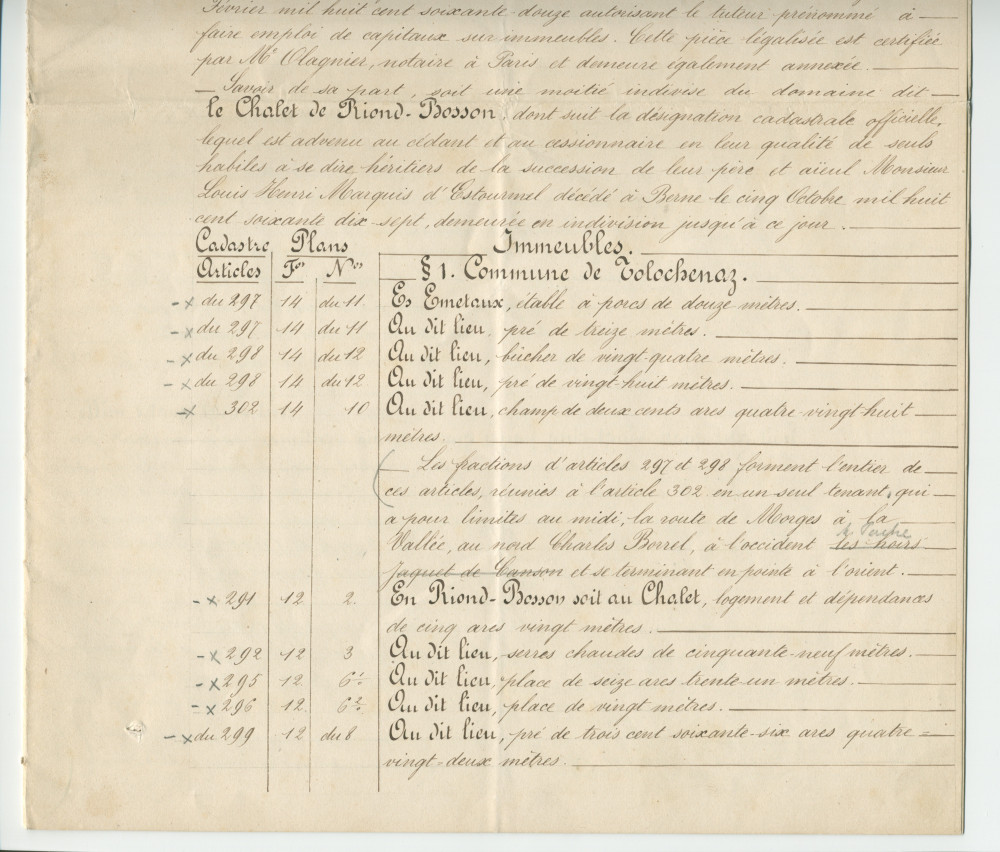 Février mil huit cent soixante douze autorisant le tuteur prénommé à
faire emploi de capitaux sur immeubles. Cette pièce légalisée est certifiée
par Me Olagnier, notaire à Paris et demeure également annexée.
Savoir de sa part, soit une moitié indivise du domaine dit
le Chalet de Riond-Bosson, dont suit la désignation cadastrale officielle,
lequel est advenu au cédant et au cessionnaire en leur qualité de seuls
habiles à se dire héritiers de la succession de leur père et aïeul Monsieur
Louis Henri Marquis d'Estourmel décédé à Berne le cinq Octobre mil huit
cent soixante dix-sept, demeurée en indivision jusqu'à ce jour.
Cadastre Plans Immeubles.
Articles Fos Nos § 1. Commune de Tolochenaz.
- x du 297 14 du 11 Es Emetaux, étable à porcs de douze mètres.
- x du 297 14 du 11 Au dit lieu, pré de treize mètres.
- x du 298 14 du 12 Au dit lieu, bûcher de vingt-quatre mètres.
- x du 298 14 du 12 Au dit lieu, pré de vingt-huit mètres.
- x 302 14 10 Au dit lieu, champ de deux cents ares quatre-vingt-huit
mètres.
Les fractions d'articles 297 et 298 forment l'entier de
ces articles, réunies à l'article 302 en un seul tenant, qui
a pour limites au midi, la route de Morges à la
Vallée, au nord Charles Borrel, à l'occident les hoirs
Jaquet de Canson et se terminant en pointe à l'orient.
- x 291 12 2 En Riond-Bosson soit au Chalet, logement et dépendances
de cinq ares vingt mètres.
- x 292 12 3 Au dit lieu, serres chaudes de cinquante-neuf mètres.
- x 295 12 6 1 Au dit lieu, place de seize ares trente-un mètres.
- x 296 12 6 2 Au dit lieu, place de vingt mètres.
- x du 299 12 du 8 Au dit lieu, pré de trois cent soixante-six ares quatre=
vingt=deux mètres.